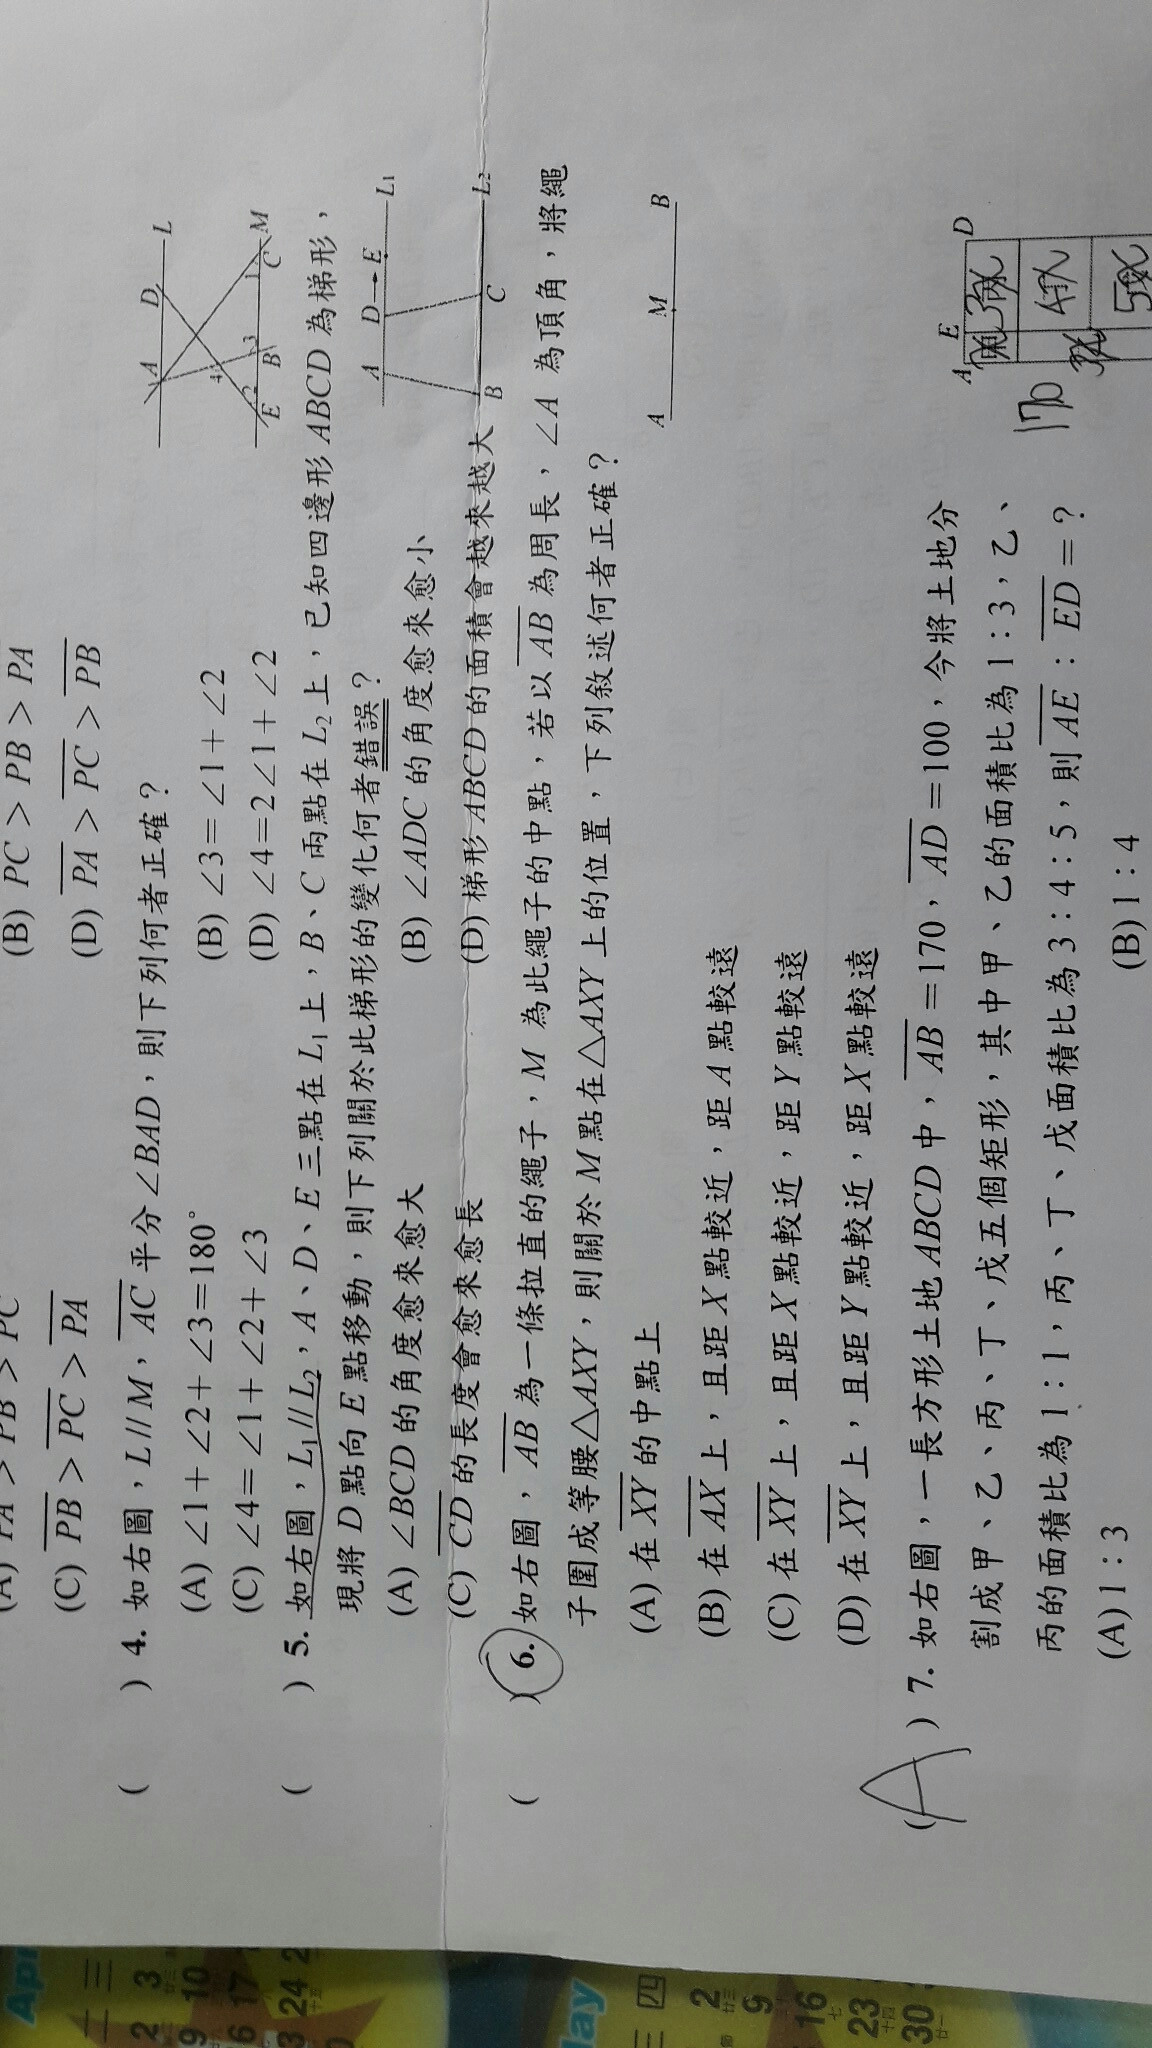 (B) PC > PB > PA
(C) PB > PC > PA
(D) PA > PC > PB
( ) 4. 如右圖，L // M，AC 平分∠BAD，則下列何者正確？
(A) ∠1＋∠2＋∠3＝180°
(B) ∠3＝∠1＋∠2
(C) ∠4＝∠1＋∠2＋∠3
(D) ∠4＝2∠1＋∠2
A D L
4 2 3 1
E B C M
( ) 5. 如右圖，L₁ // L₂，A、D、E 三點在 L₁ 上，B、C 兩點在 L₂ 上，已知四邊形 ABCD 為梯形，
現將 D 點向 E 點移動，則下列關於此梯形的變化何者錯誤？
(A) ∠BCD 的角度愈來愈大
(B) ∠ADC 的角度愈來愈小
(C) CD 的長度會愈來愈長
(D) 梯形 ABCD 的面積會越來越大
A D→E L₁
B C L₂
( ) 6. 如右圖，AB 為一條拉直的繩子，M 為此繩子的中點，若以 AB 為周長，∠A 為頂角，將繩
子圍成等腰△AXY，則關於 M 點在△AXY 上的位置，下列敘述何者正確？
(A) 在 XY 的中點上
(B) 在 AX 上，且距 X 點較近，距 A 點較遠
(C) 在 XY 上，且距 X 點較近，距 Y 點較遠
(D) 在 XY 上，且距 Y 點較近，距 X 點較遠
A M B
(A) 7. 如右圖，一長方形土地 ABCD 中，AB＝170，AD＝100，今將土地分
割成甲、乙、丙、丁、戊五個矩形，其中甲、乙的面積比為 1：3，乙、
丙的面積比為 1：1，丙、丁、戊面積比為 3：4：5，則 AE：ED＝？
(A) 1：3
(B) 1：4
A E D
170
4x
5x
二 三
2 3
9 10
17
24
三 四
2
9
16
23
30